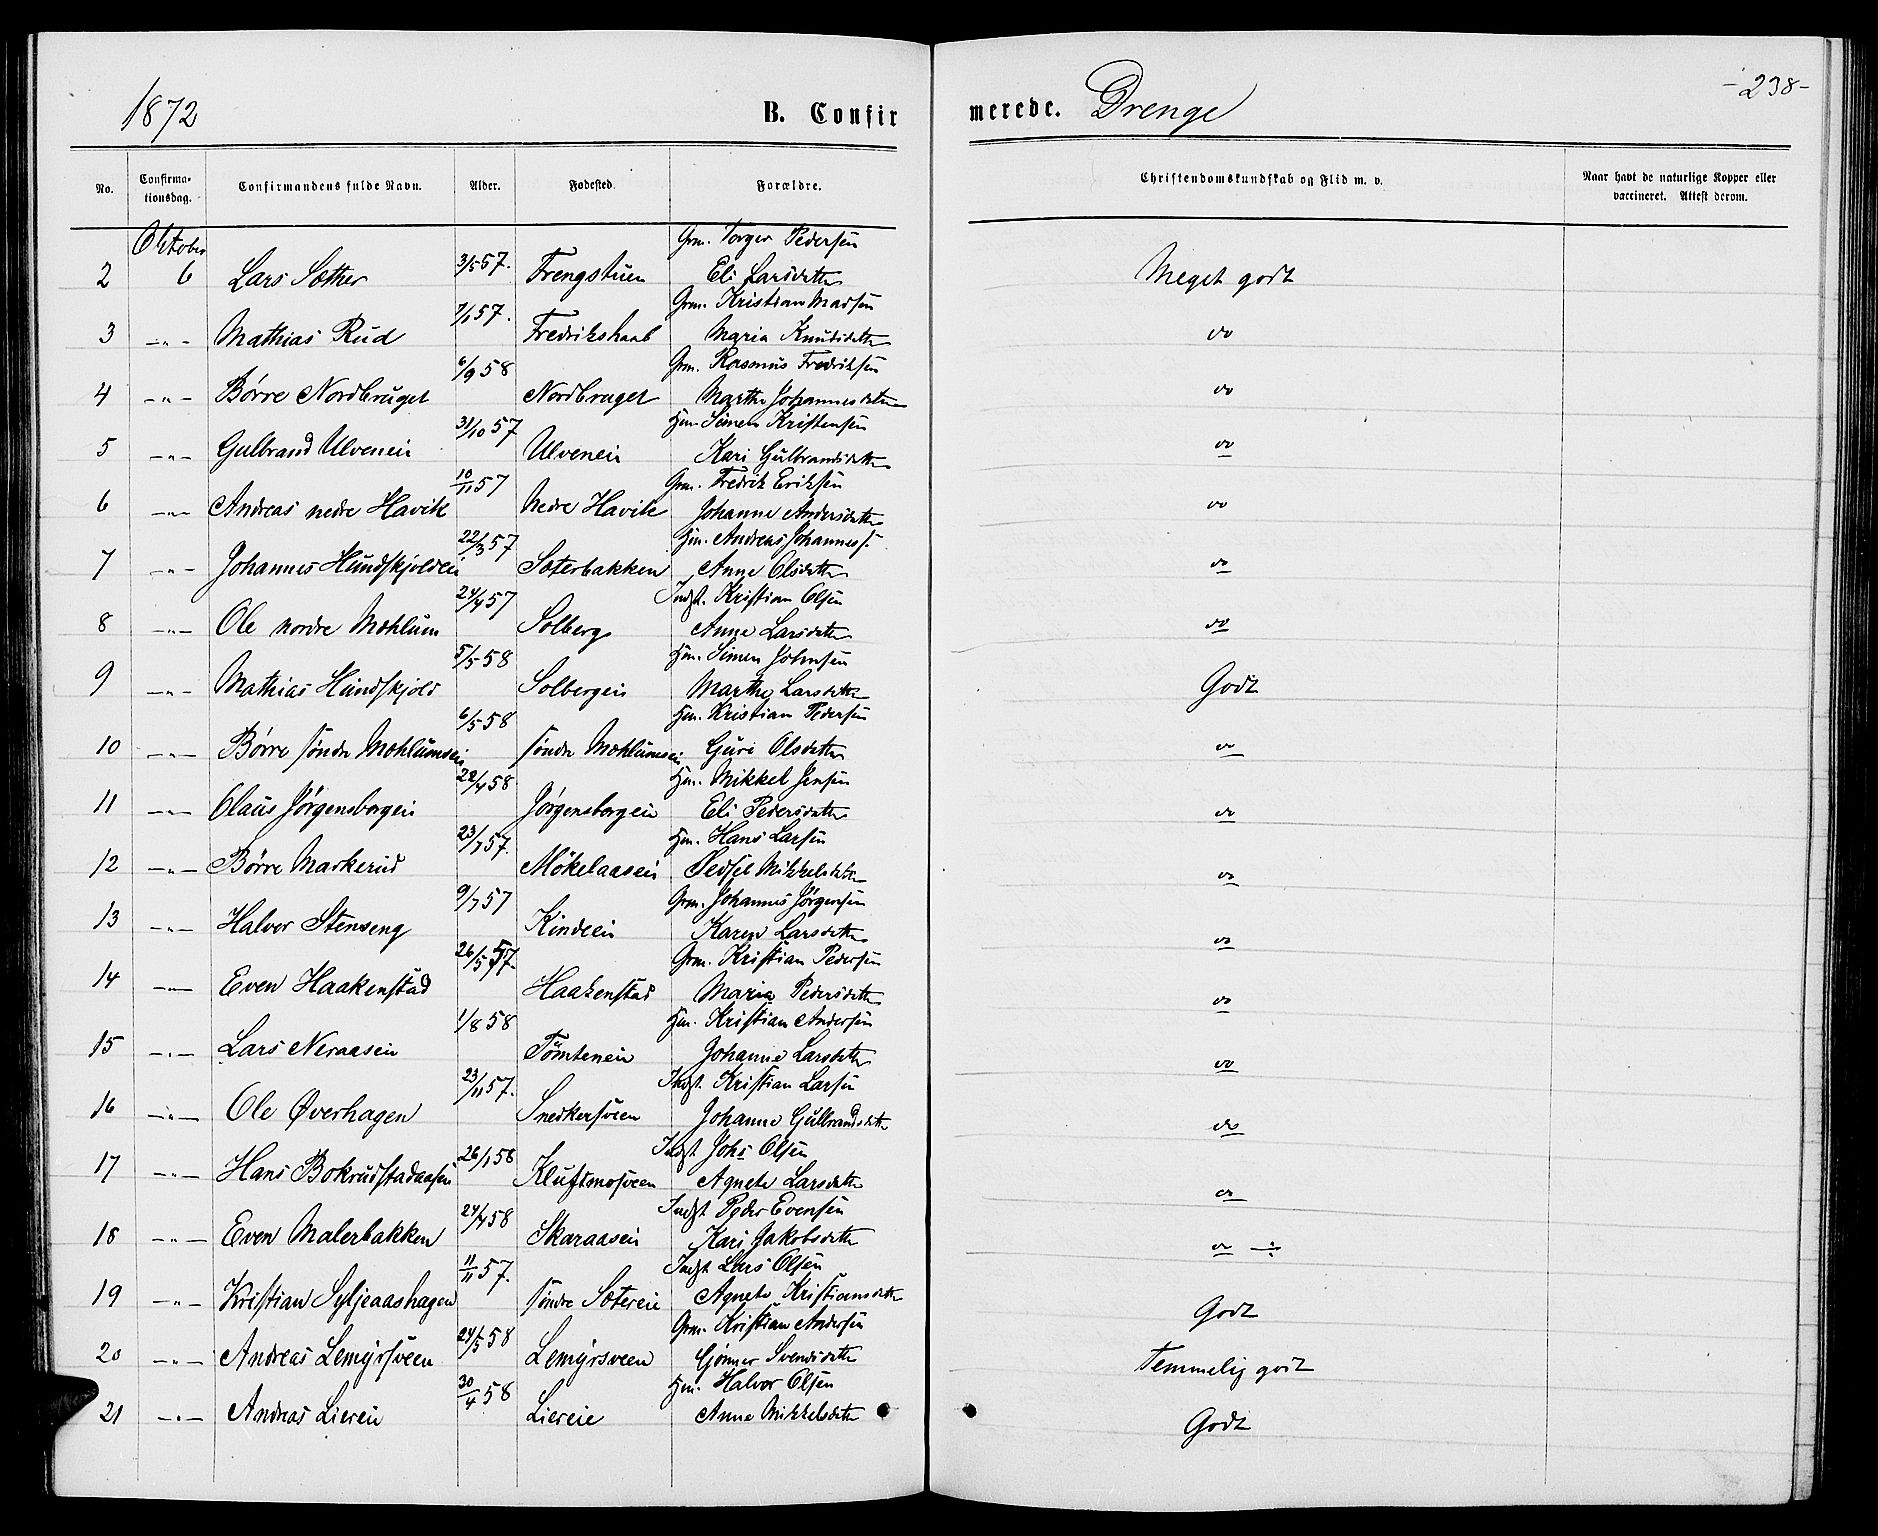 1872 B. Confirmerede. Drenge -238-
No. Confirmationsdag. Confirmandens fulde Navn. Alder. Fødested. Forældre. Christendomskundskab og Flid m. v. Naar havt de naturlige Kopper eller vaccineret. Attest derom.
Oktober Grm. Torger Pedersen
2 6 Lars Sæther 3/5 57. Frengstuen Eli Larsdatter Meget godt
Grm. Kristian Madsen
3 -"- Mathias Rud 7/1 57. Fredrikshaab Maria Knudsdatter do
Grm. Rasmus Fredriksen
4 -"- Børre Nordbruget 6/9 58 Nordbruget Marthe Johannesdatter do
Hm. Simen Kristensen
5 -"- Gulbrand Ulveneie 31/10 57 Ulveneie Kari Gulbrandsdatter do
Grm. Fredrik Eriksen
6 -"- Andreas nedre Havik 10/11 57 Nedre Havik Johanne Andersdatter do
Hm. Andreas Johanness.
7 -"- Johannes Hundskjoldeie 22/3 57 Sæterbakken Anne Olsdatter do
Indst. Kristian Olsen
8 -"- Ole nordre Mæhlum 24/4 57 Solberg Anne Larsdatter do
Hm. Simen Johnsen
9 -"- Mathias Hundskjold 5/5 58 Solbergeie Marthe Larsdatter Godt
Hm. Kristian Pedersen
10 -"- Børre søndre Mæhlumseie 6/5 58 søndre Mæhlumseie Guri Olsdatter do
Hm. Mikkel Jensen
11 -"- Claus Jørgensborgeie 22/4 58 Jørgensborgeie Eli Pedersdatter do
Hm. Hans Larsen
12 -"- Børre Markerud 23/7 57. Mökelaaseie Sedsel Mikkelsdatter do
Grm. Johannes Jørgensen
13 -"- Halvor Stenseng 9/7 57 Kindeeie Karen Larsdatter do
Grm. Kristian Pedersen
14 -"- Even Haakenstad 26/5 57. Haakenstad Maria Pedersdatter do
Hm. Kristian Andersen
15 -"- Lars Neraaseie 1/8 58 Tømteneie Johanne Larsdatter do
Indst. Kristian Larsen
16 -"- Ole Øverhagen 23/11 57. Snedkersveen Johanne Gulbrandsdatter do
Indst Johs Olsen
17 -"- Hans Bokrudstadaasen 26/1 58 Kluftmosveen Agnete Larsdatter do
Indst Peder Evensen
18 -"- Even Malerbakken 24/4 58 Skaraaseie Kari Jakobsdatter do ÷
Indst Lars Olsen
19 -"- Kristian Syljeaashagen 11/11 57. søndre Sætereie Agnete Kristiansdatter Godt
Grm. Kristian Andersen
20 -"- Andreas Lemyrsveen 24/5 58 Lemyrsveen Gjønner Svendsdatter Temmelig godt
Hm. Halvor Olsen
21 -"- Andreas Liereie 30/4 58 Liereie Anne Mikkelsdatter Godt